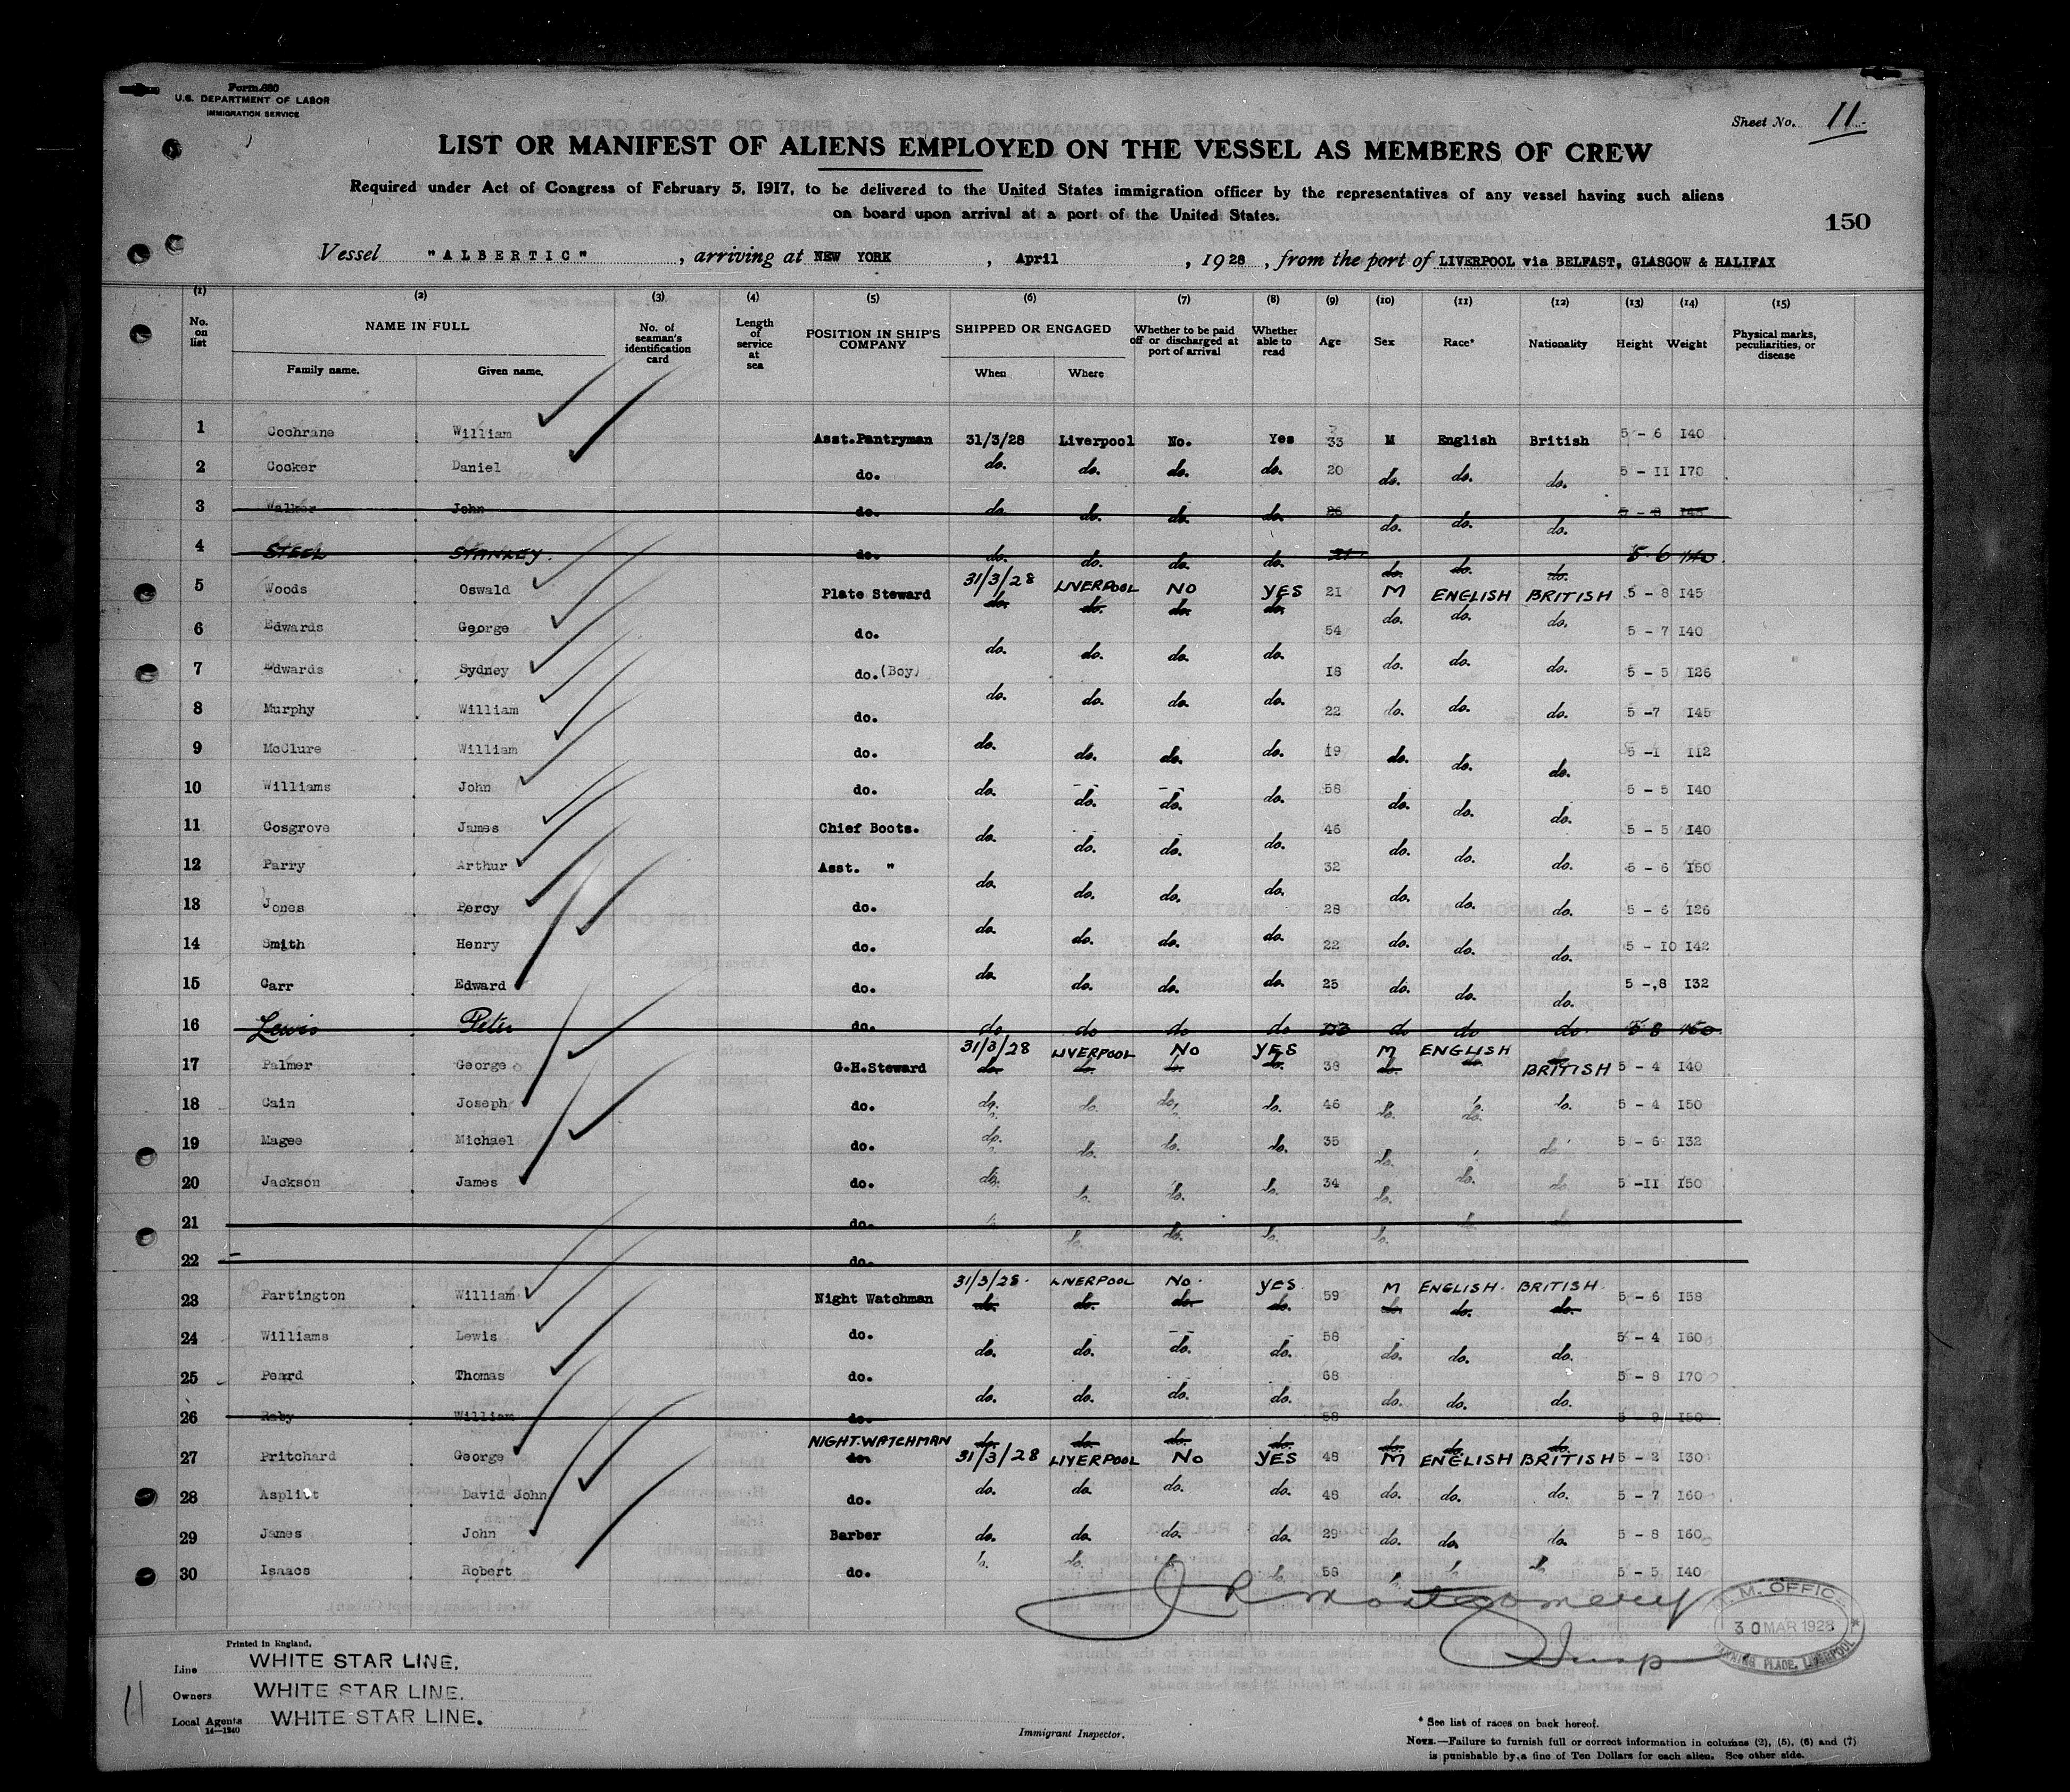 Form 680
U.S. DEPARTMENT OF LABOR
IMMIGRATION SERVICE
Sheet No. 11
LIST OR MANIFEST OF ALIENS EMPLOYED ON THE VESSEL AS MEMBERS OF CREW
Required under Act of Congress of February 5, 1917, to be delivered to the United States immigration officer by the representatives of any vessel having such aliens
on board upon arrival at a port of the United States.
150
Vessel "ALBERTIC", arriving at NEW YORK, April, 1928, from the port of LIVERPOOL via BELFAST, GLASGOW & HALIFAX
(1) (2) (3) (4) (5) (6) (7) (8) (9) (10) (11) (12) (13) (14) (15)
No. on list NAME IN FULL Family name. Given name. No. of seaman's identification card Length of service at sea POSITION IN SHIP'S COMPANY SHIPPED OR ENGAGED When Where Whether to be paid off or discharged at port of arrival Whether able to read Age Sex Race* Nationality Height Weight Physical marks, peculiarities, or disease
1 Cochrane William Asst.Pantryman 31/3/28 Liverpool No. Yes 33 M English British 5 - 6 140
2 Cocker Daniel do. do. do. do. do. 20 do. do. do. 5 - 11 170
3 Walker John do. do. do. do. do. 26 do. do. do. 5 - 8 145
4 STEEL STANLEY. do. do. do. do. do. 21 do. do. do. 5-6 140
5 Woods Oswald Plate Steward 31/3/28 LIVERPOOL NO YES 21 M ENGLISH BRITISH 5 - 8 145
do. do. do. do. do. do. do.
6 Edwards George do. 54 5 - 7 140
do. do. do. do.
7 Edwards Sydney do.(Boy) 18 do. do. do. 5 - 5 126
do. do. do. do.
8 Murphy William do. 22 do. do. do. 5 -7 145
9 McClure William do. do. do. do. do. 19 do. do. do. 5 -1 112
10 Williams John do. do. do. do. do. 58 do. do. do. 5 - 5 140
11 Cosgrove James Chief Boots. do. do. do. do. 46 do. do. do. 5 - 5 140
12 Parry Arthur Asst. " do. do. do. do. 32 do. do. do. 5 - 6 150
13 Jones Percy do. do. do. do. do. 28 do. do. do. 5 - 6 126
14 Smith Henry do. do. do. do. do. 22 do. do. do. 5 - 10 142
15 Carr Edward do. do. do. do. do. 25 do. do. do. 5 -,8 132
16 Lewis Peter do. do do do do do do do 5 8 150
17 Palmer George G.H.Steward 31/3/28 LIVERPOOL NO YES 38 M ENGLISH BRITISH 5 - 4 140
do. do. do. do. do. do.
18 Cain Joseph do. do. do. do. do. 46 do. do. do. 5 - 4 150
19 Magee Michael do. do. do. do. do. 35 do. do. 5 - 6 132
20 Jackson James do. do. do. do. do. 34 do. do. do. 5 -11 150
21 do. do. do. do. do.
22 do.
23 Partington William Night Watchman 31/3/28. LIVERPOOL NO. YES 59 M ENGLISH. BRITISH. 5 - 6 158
do. do. do. do. do. do. do.
24 Williams Lewis do. do. do. do. do. 58 do. do. do. 5 - 4 160
25 Peard Thomas do. do. do. do. do. 68 do. do. do. 5 - 8 170
26 Raby William do. 58 5 - 9 150
do. do. do. do. do. do. do.
27 Pritchard George NIGHT.WATCHMAN do. 31/3/28 LIVERPOOL NO YES 48 M ENGLISH BRITISH 5 - 2 130
28 Asplitt David John do. do. do. do. do. 48 do. do. do. 5 - 7 160
29 James John Barber do. do. do. do. 29 do. do. do. 5 - 8 160
30 Isaacs Robert do. 58 5 - 5 140
J R Montgomery
Insp
M. OFFIC
30 MAR 1928
PLACE, LIVERPOOL
Printed in England.
Line WHITE STAR LINE.
Owners WHITE STAR LINE.
Local Agents WHITE STAR LINE.
14—1240
11
Immigrant Inspector.
* See list of races on back hereof.
NOTE.—Failure to furnish full or correct information in columns (2), (5), (6) and (7)
is punishable by a fine of Ten Dollars for each alien. See other side.